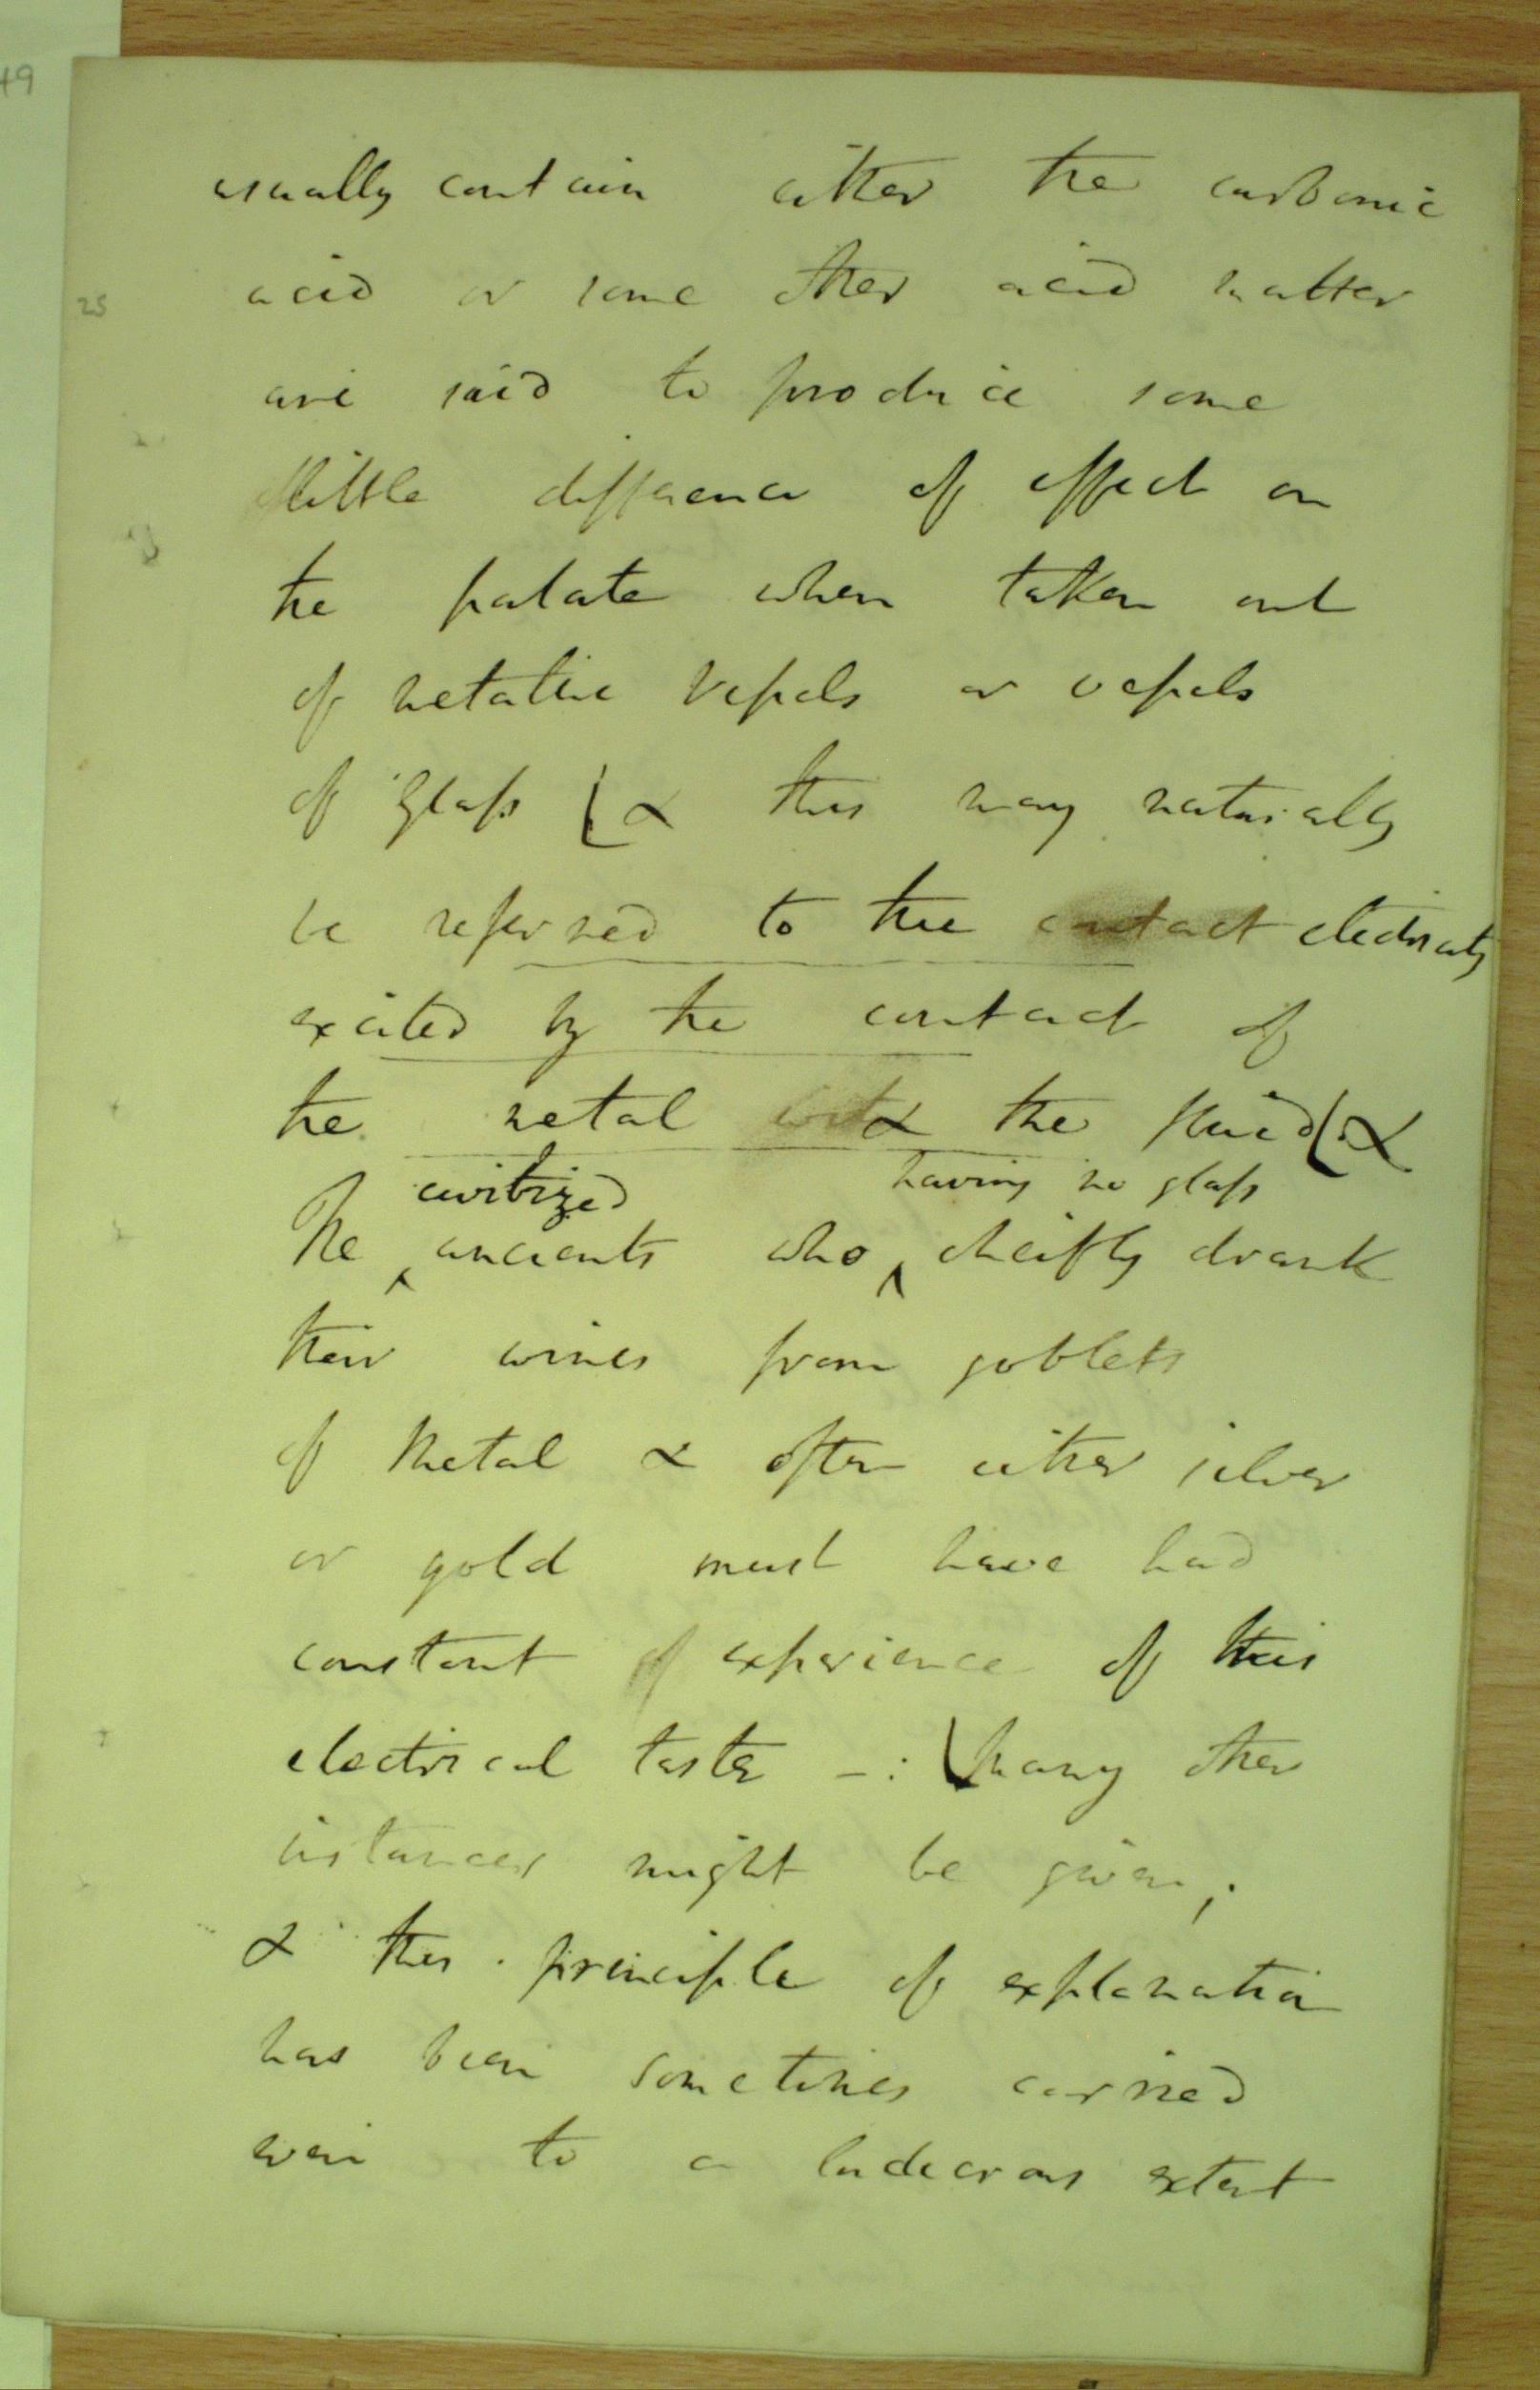 49
usually contain either the carbonic
25
acid or some other acid matter
are said to produce some
little difference of effect on
the palate when taken out
of metallic Vessels or vessels
of glass [& this may naturally
be referred to the contact electricity
excited by the contact of
the metal & the fluid [&
civilized having no glass
The ^ ancients who ^ cheifly drank
their wines from goblets
of Metal & often either silver
or gold must have had
constant of experience of this
electrical taste –: [Many other
instances might be given;
& this principle of explanation
has been sometimes carried
even to a ludicrous extent